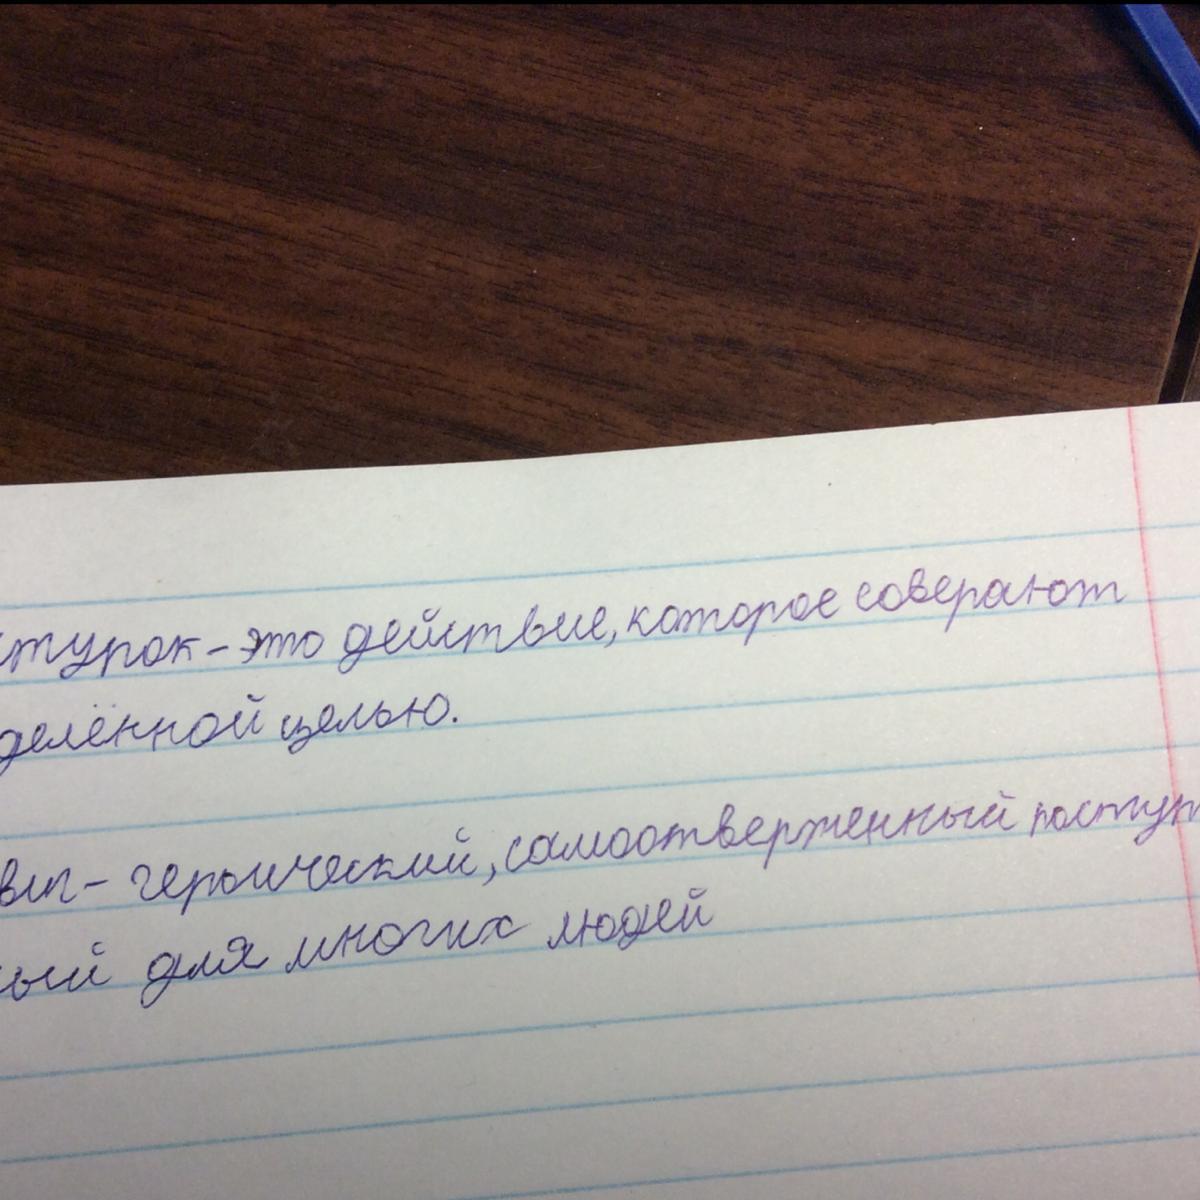 ступок - это действие, которое соверают
делённой целью.
виг - героический, самоотверженный поступ
ный для многих людей